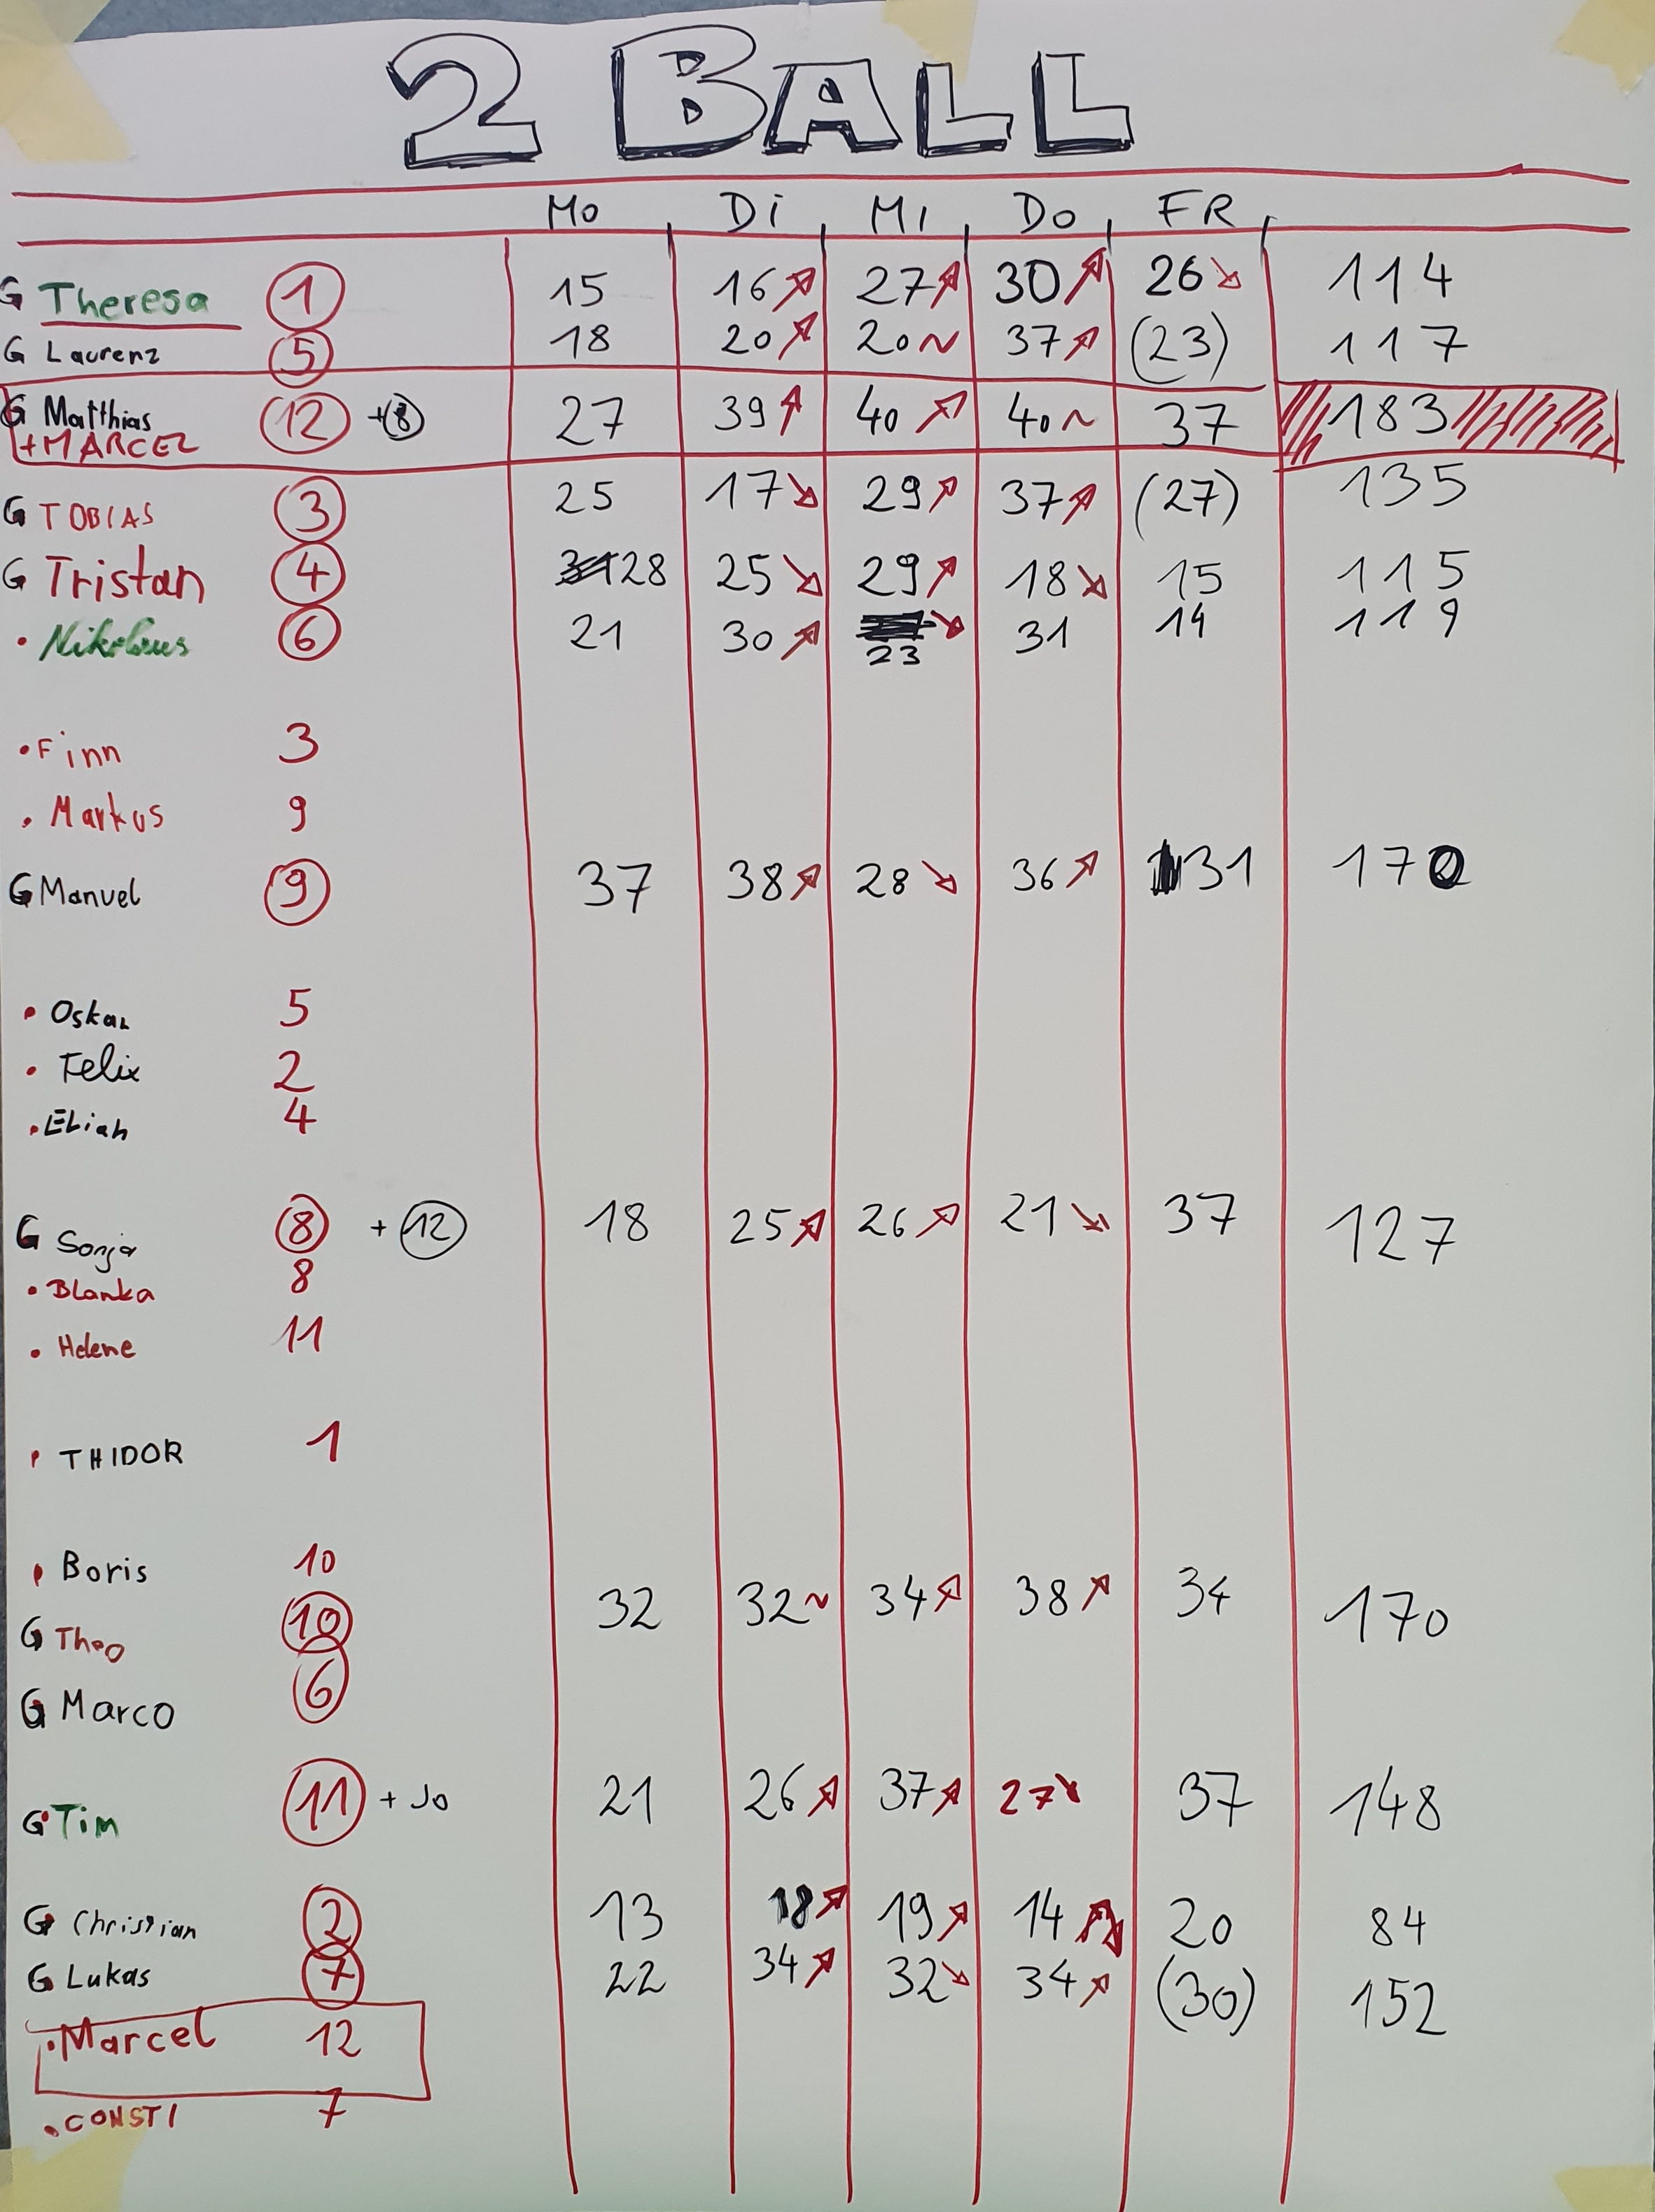 2 BALL
Mo Di Mi Do FR
G Theresa 1 15 16↗ 27↗ 30↗ 26↘ 114
G Laurenz 5 18 20↗ 20~ 37↗ (23) 117
G Matthias 12 +8 27 39↗ 40↗ 40~ 37 183
+MARCEL
G TOBIAS 3 25 17↘ 29↗ 37↗ (27) 135
G Tristan 4 28 25↘ 29↗ 18↘ 15 115
• Nikolaus 6 21 30↗ ↘ 31 14 119
23
• Finn 3
• Markus 9
G Manuel 9 37 38↗ 28↘ 36↗ 31 170
• Oskar 5
• Felix 2
• ELiah 4
G Sonja 8 + 12 18 25↗ 26↗ 21↘ 37 127
• BLanka 8
• Helene 11
• THIDOR 1
• Boris 10
G Theo 10 32 32~ 34↗ 38↗ 34 170
G Marco 6
G Tim 11 + Jo 21 26↗ 37↗ 27↘ 37 148
G Christian 2 13 18↗ 19↗ 14↘ 20 84
G Lukas 7 22 34↗ 32↘ 34↗ (30) 152
• Marcel 12
• CONSTI 7